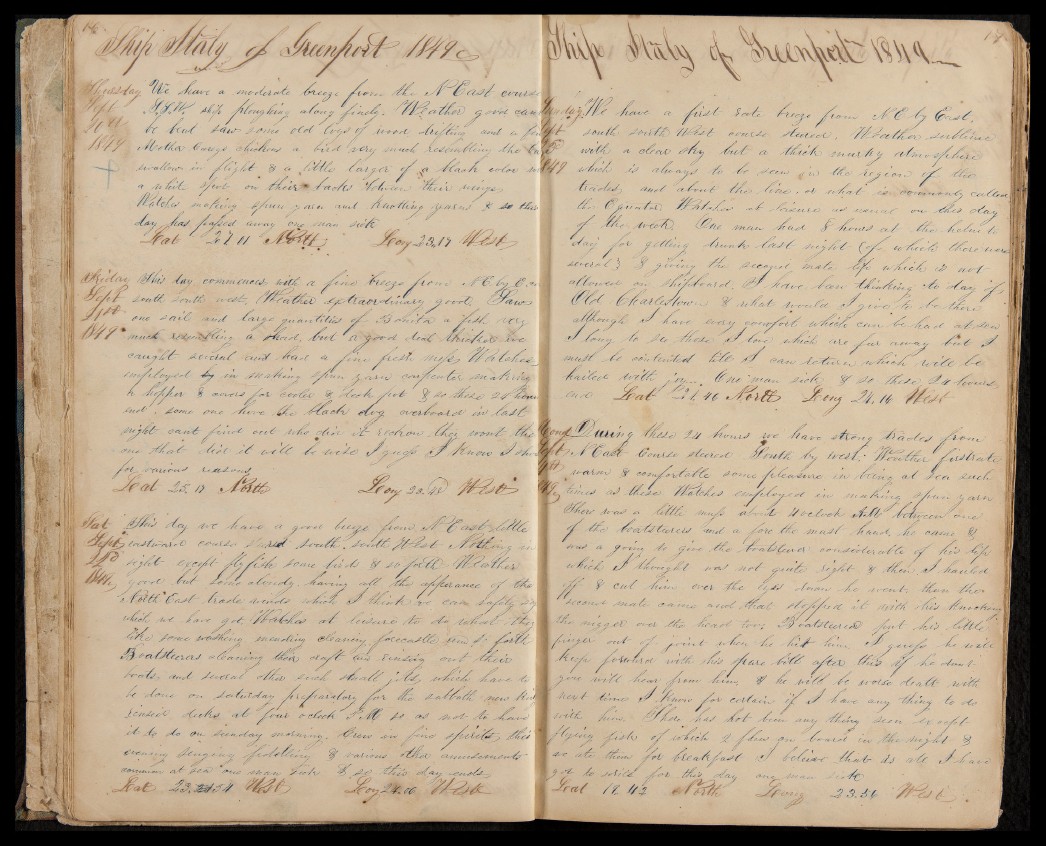 Ship Italy of Greenport 1849
Thursday We have a moderate breeze from the N East course
Sept S.S.W. ship ploughing along finely. Weather good can
be bent saw some old logs of wood drifting and a few
1849 Mother Careys chickens a bird very much resembling the
swallow in flight & a little larger of a black color
a white spot on their backs between their wings
Watches making spun yarn and knotting yarns & so this
day has passed away one man sick
Lat 27 11 North Long 23,17 West
Friday This day commences with a fine breeze from N.E. by E.
Sept south south west. Weather extraordinary good. Saw
21st one sail and large quantities of Bonita a fish very
1849 much resembling a shad, but a good deal thicker we
caught several and had a fine fresh mess Watches
employed in making spun yarn carpenter making
a hopper & oars for cooler & look pot & so these 24 hours
end some one hove the black dog overboard in last
night cant find out who did it reckon they wont the
one that did it will be wise I guess I know I sh
for various reasons
Lat 25.17 North Long 23.48 West
Sat This day we have a good breeze from N East little
Sept eastward course steered south south West Nothing in
22nd sight except flyfish some birds & so forth Weather
1849 good but some cloudy, having all the apperance of the
North East trade winds which I think we can safely say
which we have got. Watches at leisure to do what they
like some washing mending cleaning forecastle and so forth
Boatsteerers cleaning their craft and rinsing out their
boats, and several other such small jobs, which have to
be done on saturday preparatory for the sabbath
rinsed decks at four oclock P.M so as not to have
it to do on sunday morning. Crew in fine spirits, this
evening singing fiddling & various other amusements
common at sea one man sick & so this day ends
Lat 23.54 North Long 24.00 West
Ship Italy of Greenport 1849
Sunday We have a first rate breeze from N.E. by East.
Sept south south West course steered. Weather sublime
with a clear sky but a thick murky atmosphere
1849 which is always to be seen in the region of the
trades, and about the line, or what is commonly called
the Equator. Watches at leisure as usual on this day
of the week. One man had 8 hours at the helm to
day for getting drunk last night (of which there were
several) & giving the second mate lip which is not
allowed on shipboard. I have been thinking to day of
Old Charlestown & what would I give to be there
although I have every comfort which can be had at sea
I long to see those I love which are far away but I
must be contented till I can return which will be
hailed with joy. One man sick & so these 24 hours
end Lat 21,46 North Long 24,16 West
Mond During these 24 hours we have strong trades from
Sept N East Course steered South by west. Weather first rate
24th warm & comfortable some pleasure in being at sea such
49 times as these Watches employed in making spun yarn
There was a little muss about 4 oclock A.M between one
of the boatsteerers and a fore the mast hand, he came &
was a going to give the boatsteerer considerable of his lip
which I thought was not quite right & then I hauled
off & cut him over the eyes down he went. then the
second mate came and that stopped it with his knocking
the nigger over the head too; Boatsteerer put his little
finger out of joint when he hit him, I guess he will
keep forward with his spare bill after this if he dont
you will hear from him & he will be worse dealt with
next time I know for certain if I have any thing to do
with him. There has not been any thing seen except
flying fish of which 2 flew on board in the night &
we ate them for breakfast I believe that is all I have
got to write for this day one man sick
Lat 18 43 North Long 23.54 West